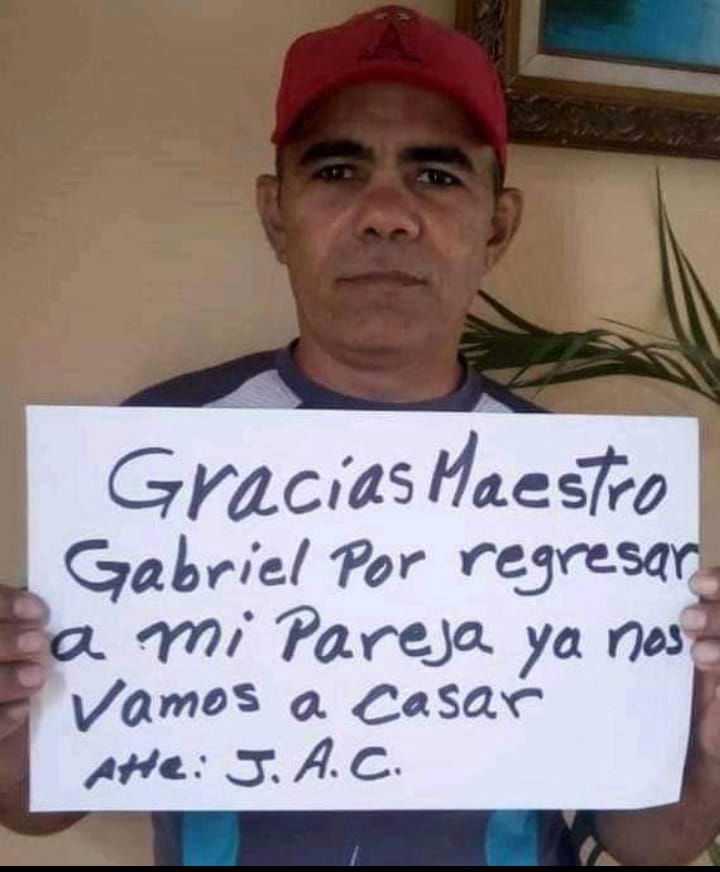 A
Gracias Maestro
Gabriel Por regresar
a mi Pareja ya nos
Vamos a casar
Atte: J.A.C.